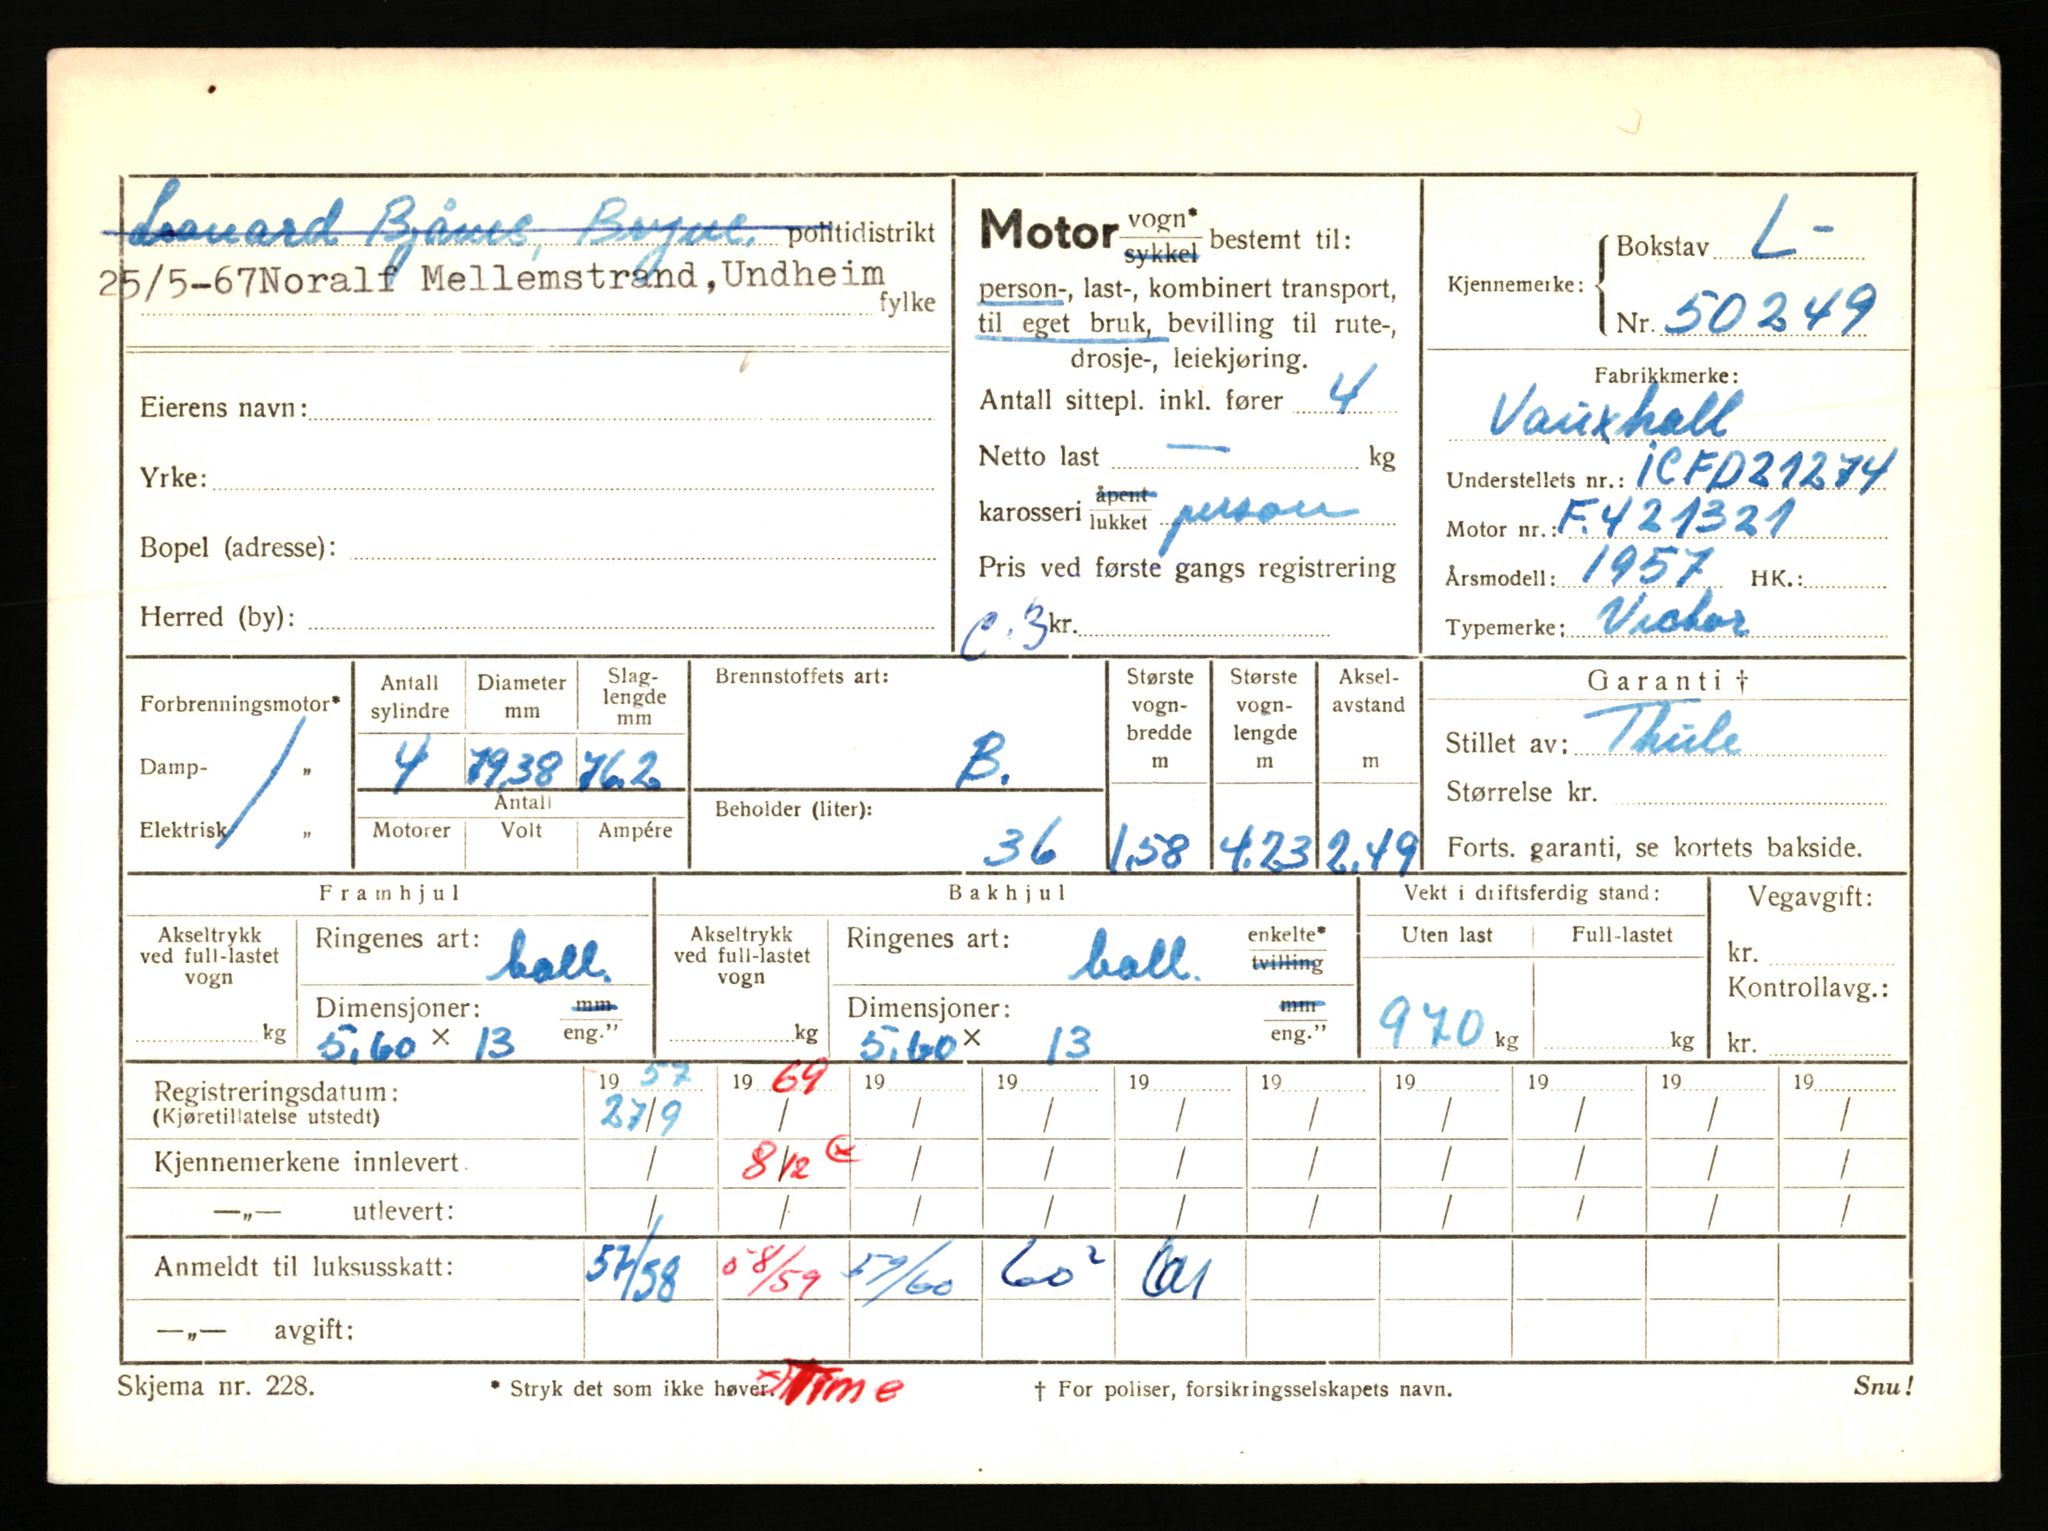 Leonard Bjånes, Bryne. politidistrikt
25/5-67 Noralf Mellemstrand, Undheim
fylke
Eierens navn:
Yrke:
Bopel (adresse):
Herred (by):
Motor vogn* sykkel bestemt til:
person-, last-, kombinert transport,
til eget bruk, bevilling til rute-,
drosje-, leiekjøring.
Antall sittepl. inkl. fører 4
Netto last — kg
karosseri åpent lukket person
Pris ved første gangs registrering
C. 3 kr.
Kjennemerke: Bokstav L-
Nr. 50249
Fabrikkmerke:
Vauxhall
Understellets nr.: iCFD21274
Motor nr.: F.421321
Årsmodell: 1957 HK.:
Typemerke: Victor
Forbrenningsmotor*
Damp- „
Elektrisk „
Antall sylindre Diameter mm Slag-lengde mm
4 79.38 76.2
Antall
Motorer Volt Ampére
Brennstoffets art:
B.
Beholder (liter):
36
Største vogn-bredde m 1.58
Største vogn-lengde m 4.23
Aksel-avstand m 2.49
Garanti †
Stillet av: Thule
Størrelse kr.
Forts. garanti, se kortets bakside.
Framhjul
Akseltrykk ved full-lastet vogn kg
Ringenes art: ball.
Dimensjoner: mm
5.60 × 13 eng."
Bakhjul
Akseltrykk ved full-lastet vogn kg
Ringenes art: ball. enkelte* tvilling
Dimensjoner: mm
5.60 × 13 eng."
Vekt i driftsferdig stand:
Uten last Full-lastet
970 kg kg
Vegavgift:
kr.
Kontrollavg.:
kr.
Registreringsdatum: 19 57 19 69 19 19 19 19 19 19 19 19
(Kjøretillatelse utstedt) 27/9 / / / / / / / / /
Kjennemerkene innlevert / 8/12 (x / / / / / / / /
—„— utlevert: / / / / / / / / / /
Anmeldt til luksusskatt: 57/58 58/59 59/60 60² 61
—„— avgift:
Skjema nr. 228.
* Stryk det som ikke høver.
x Time
† For poliser, forsikringsselskapets navn.
Snu!